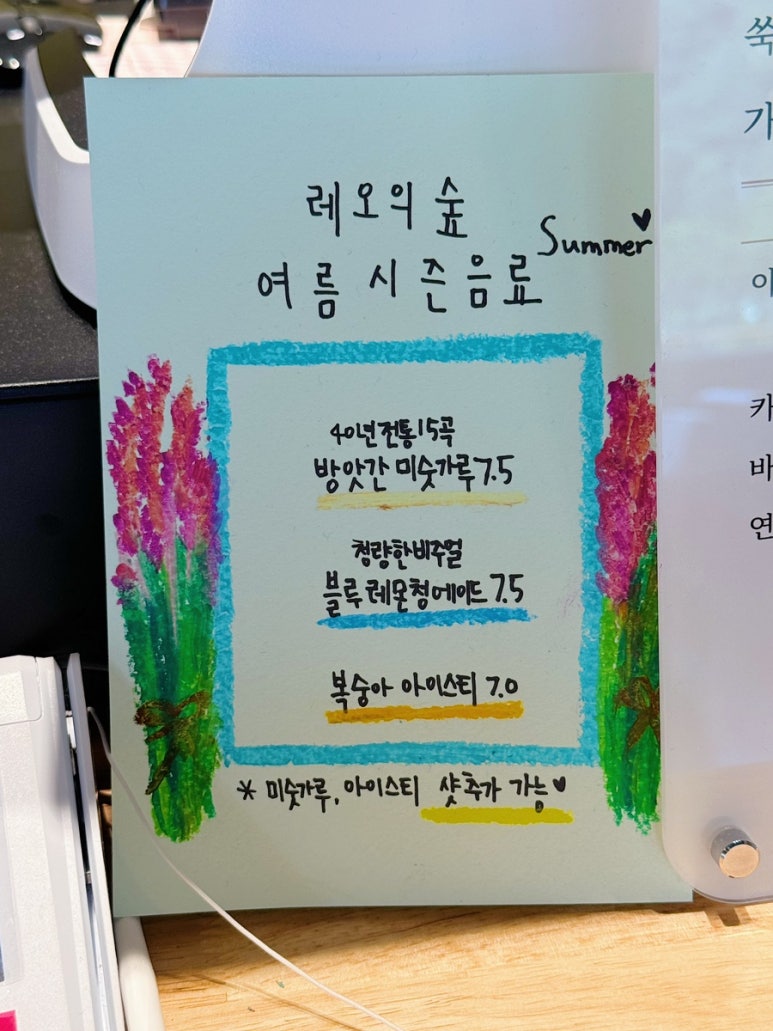 레오의숲
Summer
여름 시즌음료
40년전통15곡
방앗간 미숫가루 7.5
청량한비주얼
블루레몬청에이드 7.5
복숭아 아이스티 7.0
* 미숫가루, 아이스티 샷추가 가능
쑥
가
이
카
바
연